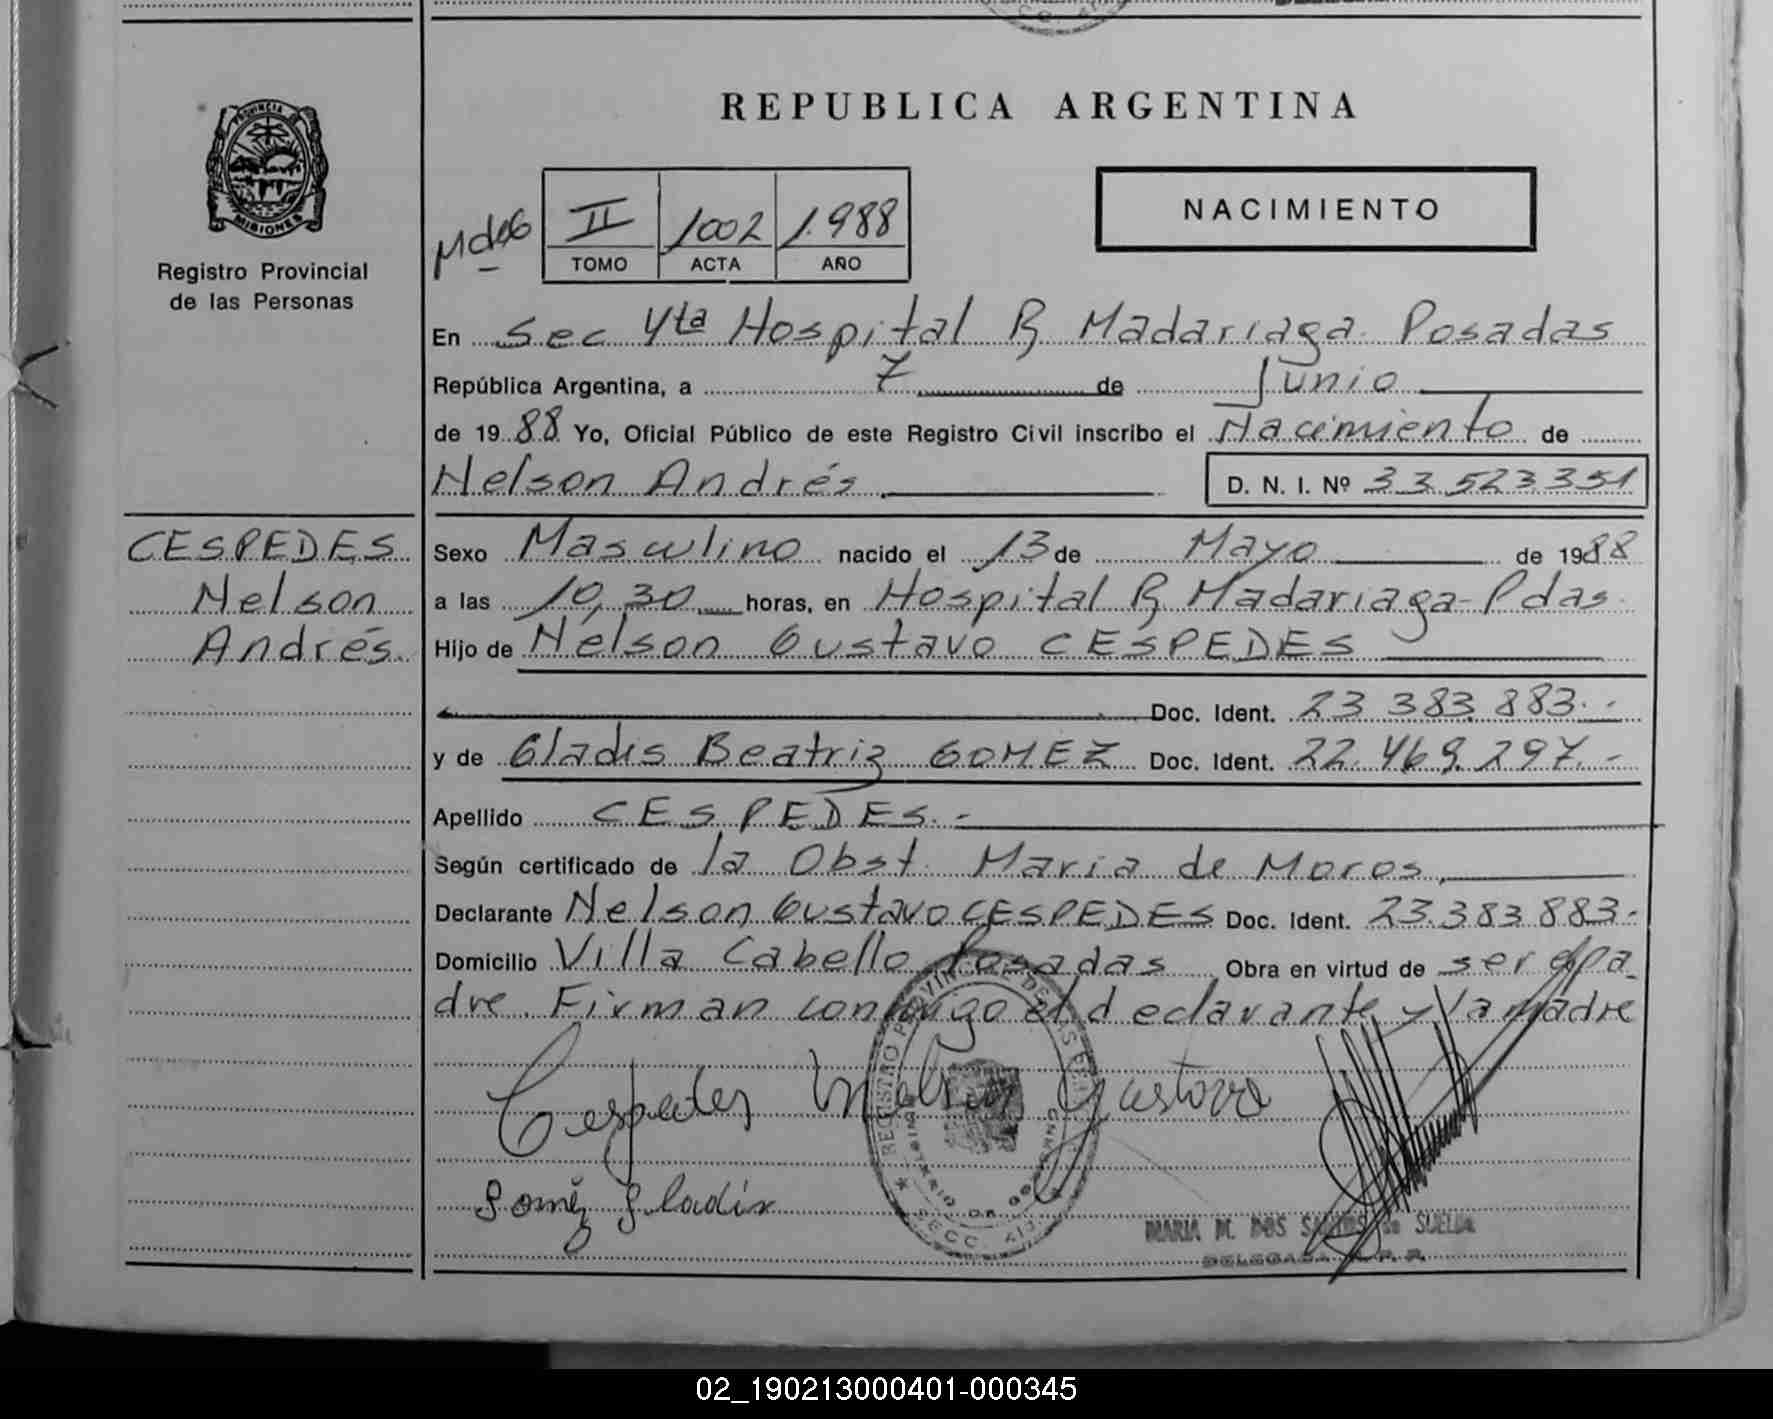 REPUBLICA ARGENTINA
PROVINCIA
MISIONES
Registro Provincial
de las Personas
II 1002 1.988
TOMO ACTA AÑO
NACIMIENTO
En Sec 4ta Hospital R Madariaga Posadas
República Argentina, a 7 de Junio
de 1988 Yo, Oficial Público de este Registro Civil inscribo el Nacimiento de
Nelson Andrés D. N. I. Nº 33.523.351
CESPEDES
Nelson
Andrés.
Sexo Masculino nacido el 13 de Mayo de 1988
a las 10,30 horas, en Hospital R Madariaga-Pdas.
Hijo de Nélson Gustavo CESPEDES
Doc. Ident. 23 383.883.-
y de Gladis Beatriz GOMEZ Doc. Ident. 22.469.297.-
Apellido CESPEDES.-
Según certificado de la Obst. Maria de Moros,
Declarante Nelson Gustavo CESPEDES Doc. Ident. 23.383.883.-
Domicilio Villa Cabello Posadas Obra en virtud de ser el pa-
dre. Firman conmigo el declarante y la madre
Cespedes Nelson Gustavo
Goméz Gladis
REGISTRO PROVINCIAL DE LAS
SECC. 4ta
MARIA M. DOS SANTOS de
DELEGADA R. P. P.
02_190213000401-000345